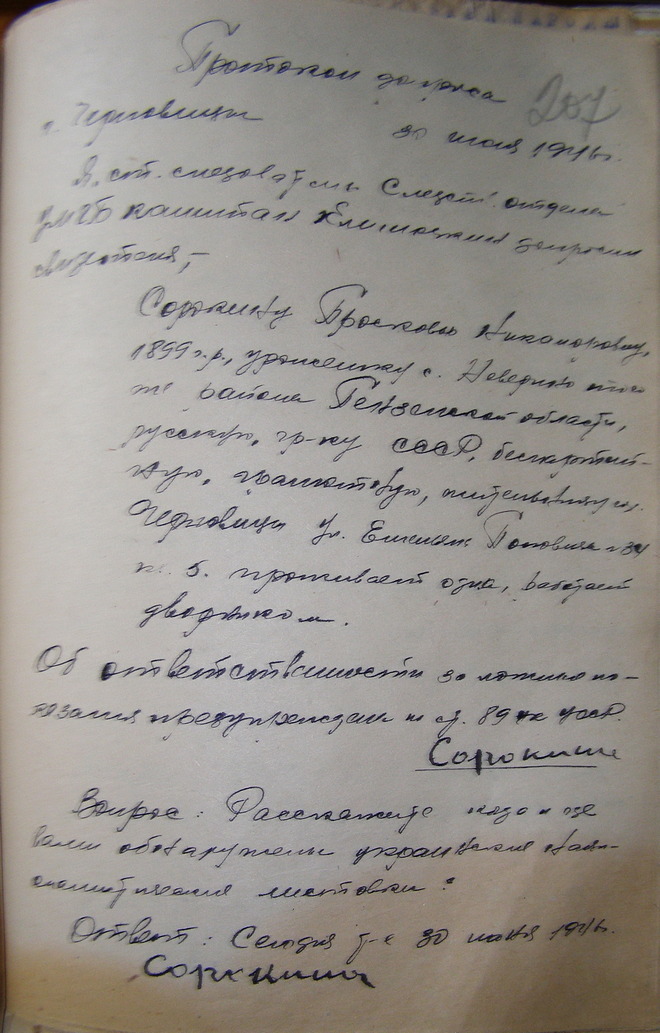 Протокол допроса
207
г. Черновицы 30 июня 1946 г.
Я, ст. следователь Следст. отдела
УМГБ капитан допросил
свидетеля,-
Сорокину Просковью Никаноровну,
1899 г.р., уроженку с.
же района Пензенской области,
русскую, гр-ку СССР, беспартий-
ную, грамотную, жительницу гор.
Черновицы ул. Емельяна Поповича № 34
кв. 5. проживает одна, работает
дворником.
Об ответственности за ложные по-
казания предупрежден по ст. 89 УК УССР.
Сорокина
Вопрос: Расскажите когда и где
вами обнаружены украинские наци-
оналистические листовки?
Ответ: Сегодня т-е 30 июня 1946 г.
Сорокина